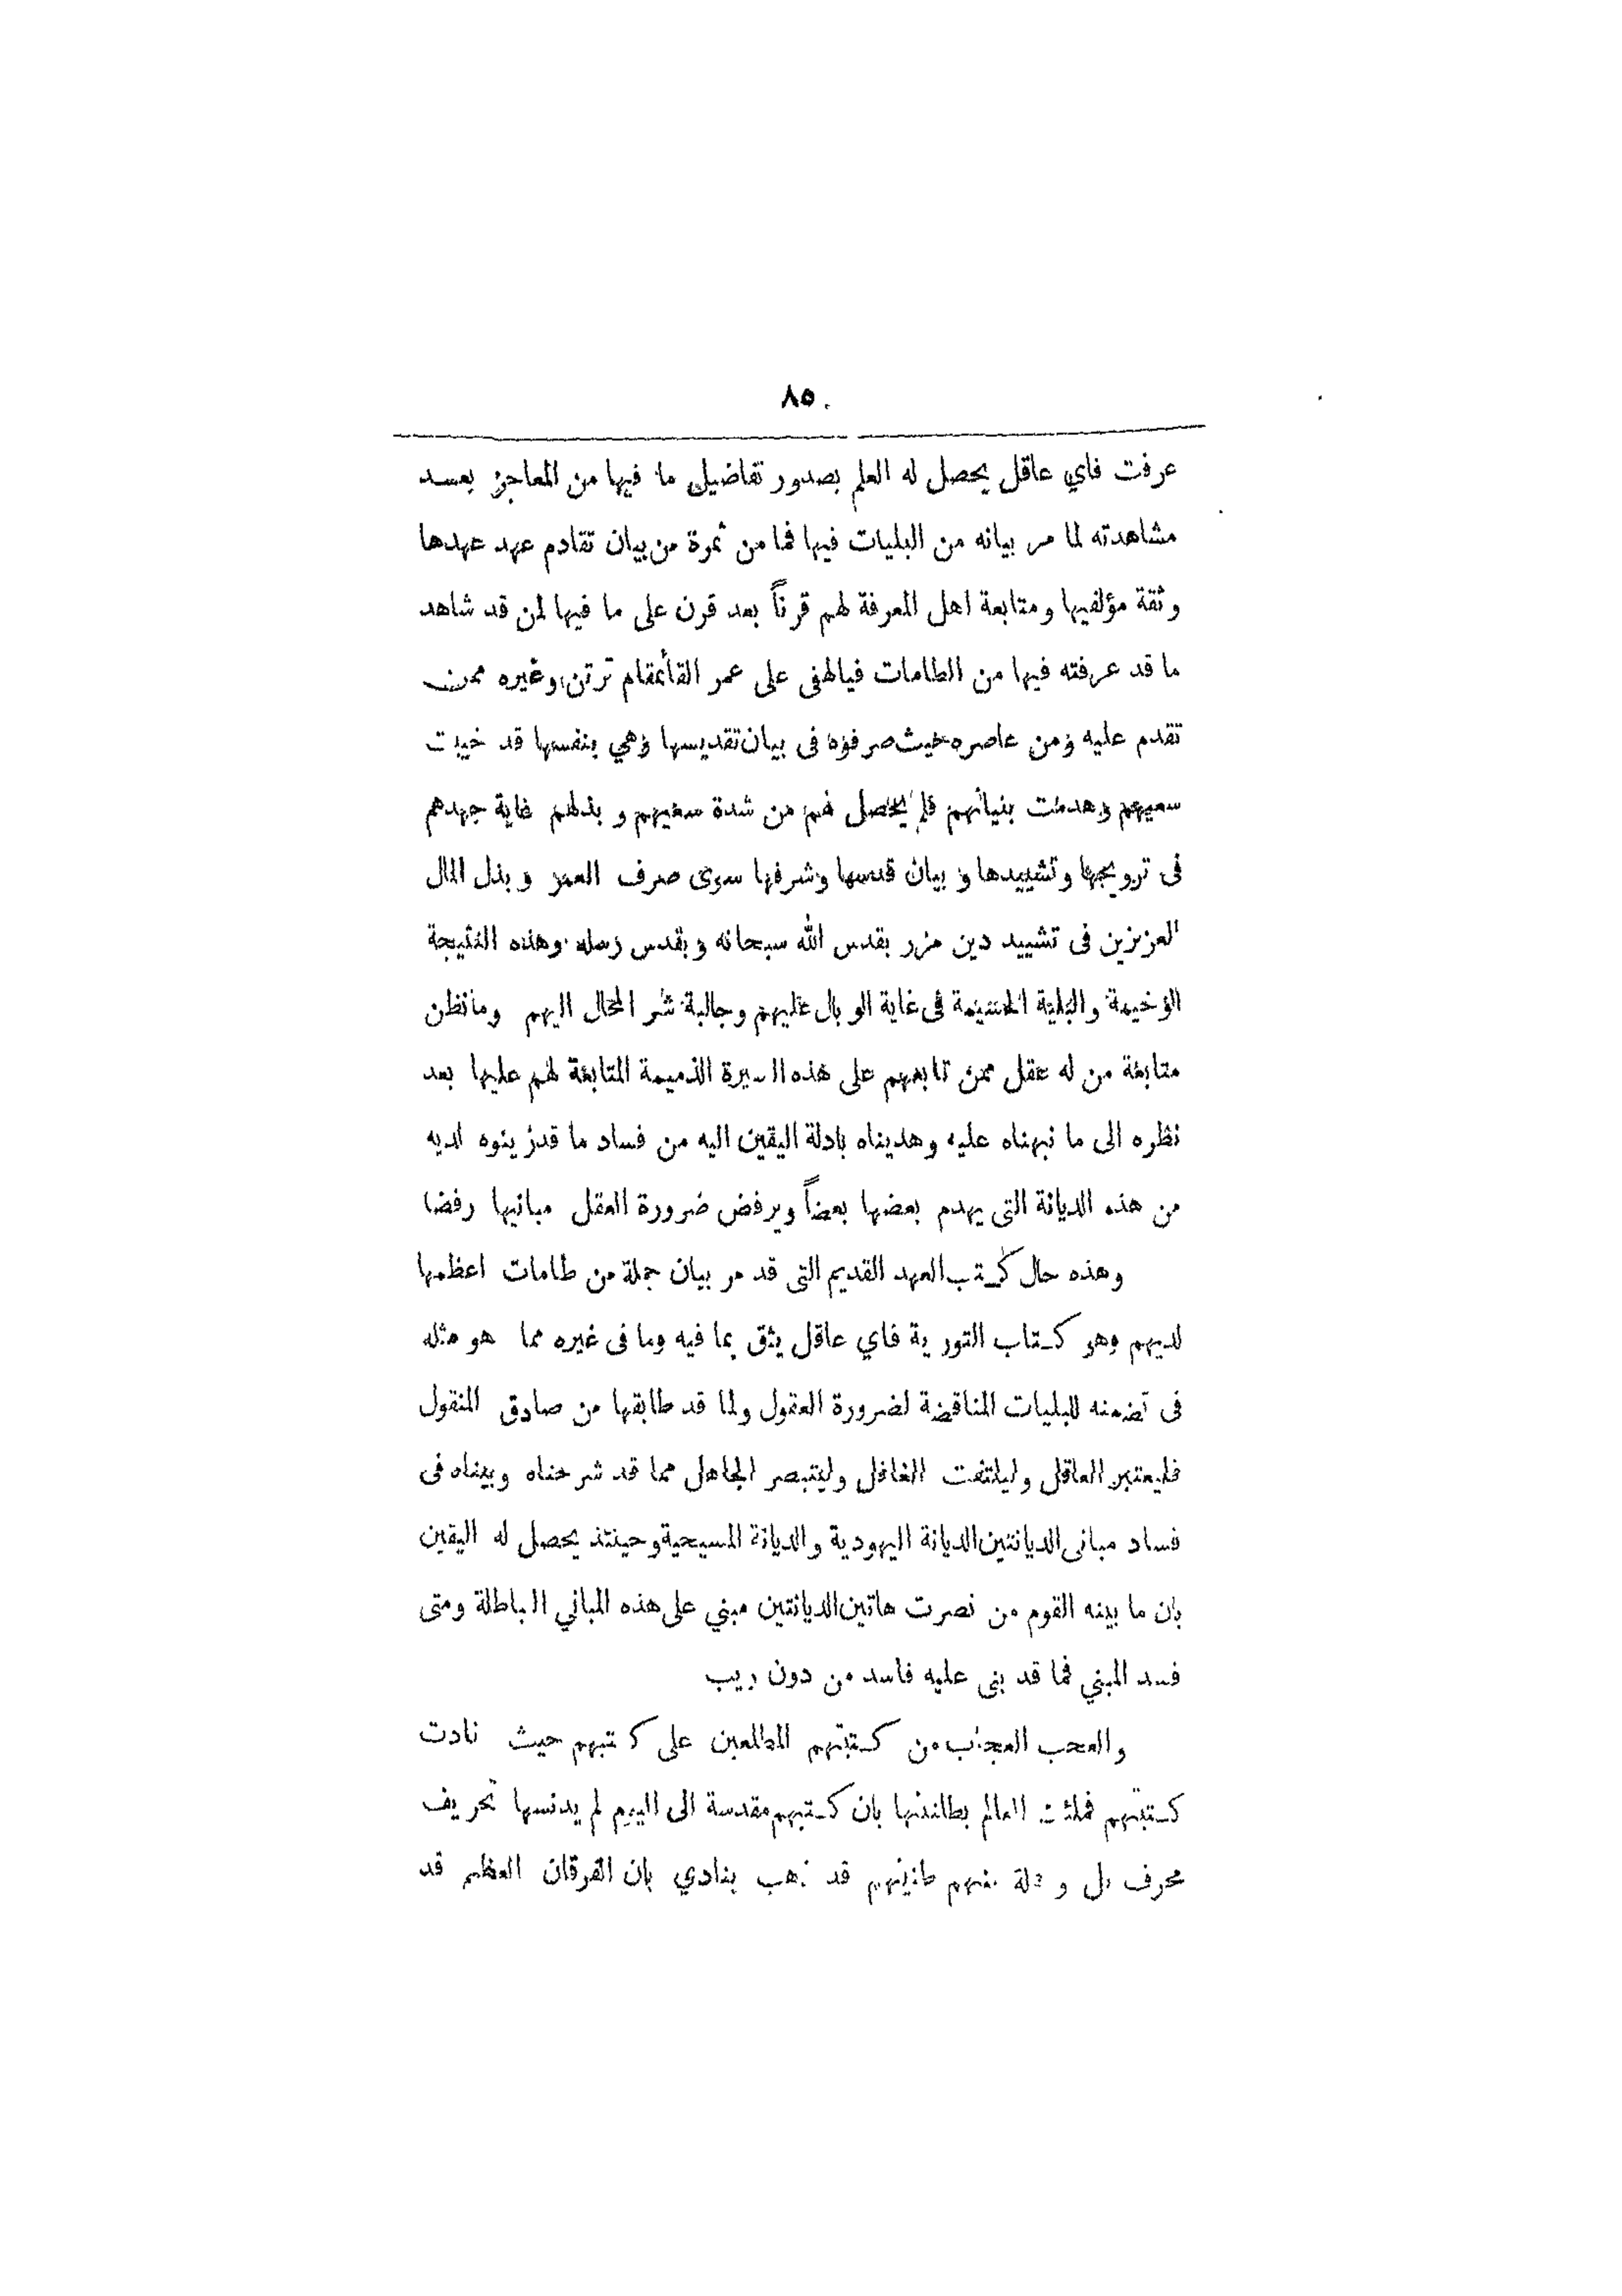 ٨٥
عرفت فاي عاقل يحصل له العلم بصدور تفاضيل ما فيها من المعاجز بعسد
مشاهدته لما مر بيانه من البليات فيها فما من ثمرة من بيان تقادم عهد عهدها
وثقة مؤلفيها ومتابعة اهل المعرفة لهم قرناً بعد قرن على ما فيها لمن قد شاهد
ما قد عرفته فيها من الطامات فيالهفى على عمر القائمقام ترتن وغيره ممن
تقدم عليه ومن عاصره حيث صرفوه فى بيان تقديسها وهي بنفسها قد خيبت
سعيهم وهدمت بنيانهم فلم يحصل لهم من شدة سعيهم و بذلهم غاية جهدهم
فى ترويجها وتشييدها و بيان قدسها وشرفها سوى صرف العمر و بذل المال
العزيزين فى تشييد دين مزر بقدس الله سبحانه و بقدس رسله وهذه النتيجة
الوخيمة والبلية الجسيمة فى غاية الوبال عليهم وجالبة شر المحال اليهم وما نظن
متابعة من له عقل ممن تابعهم على هذه السيرة الذميمة المتابعة لهم عليها بعد
نظره الى ما نبهناه عليه وهديناه بادلة اليقين اليه من فساد ما قد زينوه لديه
من هذه الديانة التى يهدم بعضها بعضاً ويرفض ضرورة العقل مبانيها رفضا
وهذه حال كتب العهد القديم التى قد مر بيان جملة من طامات اعظمها
لديهم وهو كتاب التورية فاي عاقل يثق بما فيه وما فى غيره مما هو مثله
فى تضمنه للبليات المناقضة لضرورة العقول ولما قد طابقها من صادق المنقول
فليعتبر العاقل وليلتفت الغافل وليتبصر الجاهل مما قد شرحناه وبيناه فى
فساد مبانى الديانتين الديانة اليهودية والديانة المسيحية وحينئذ يحصل له اليقين
بان ما بينه القوم من نصرت هاتين الديانتين مبني على هذه المباني الباطلة ومتى
فسد المبني فما قد بنى عليه فاسد من دون ريب
والعجب العجاب من كتبتهم المطلعين على كتبهم حيث نادت
كتبتهم فملئت العالم بطانتها بان كتبهم مقدسة الى اليوم لم يدنسها تحريف
محرف بل و منهم قد ذهب ينادي بان الفرقان العظيم قد